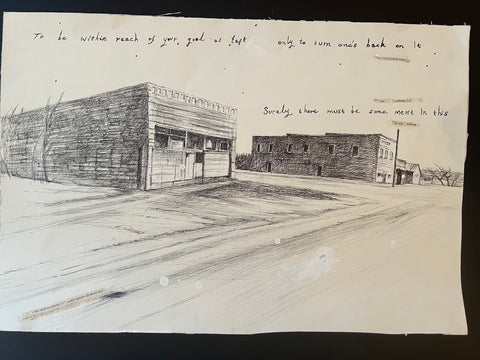 To be within reach of your goal at last only to turn one's back on it
Surely there must be some merit in this